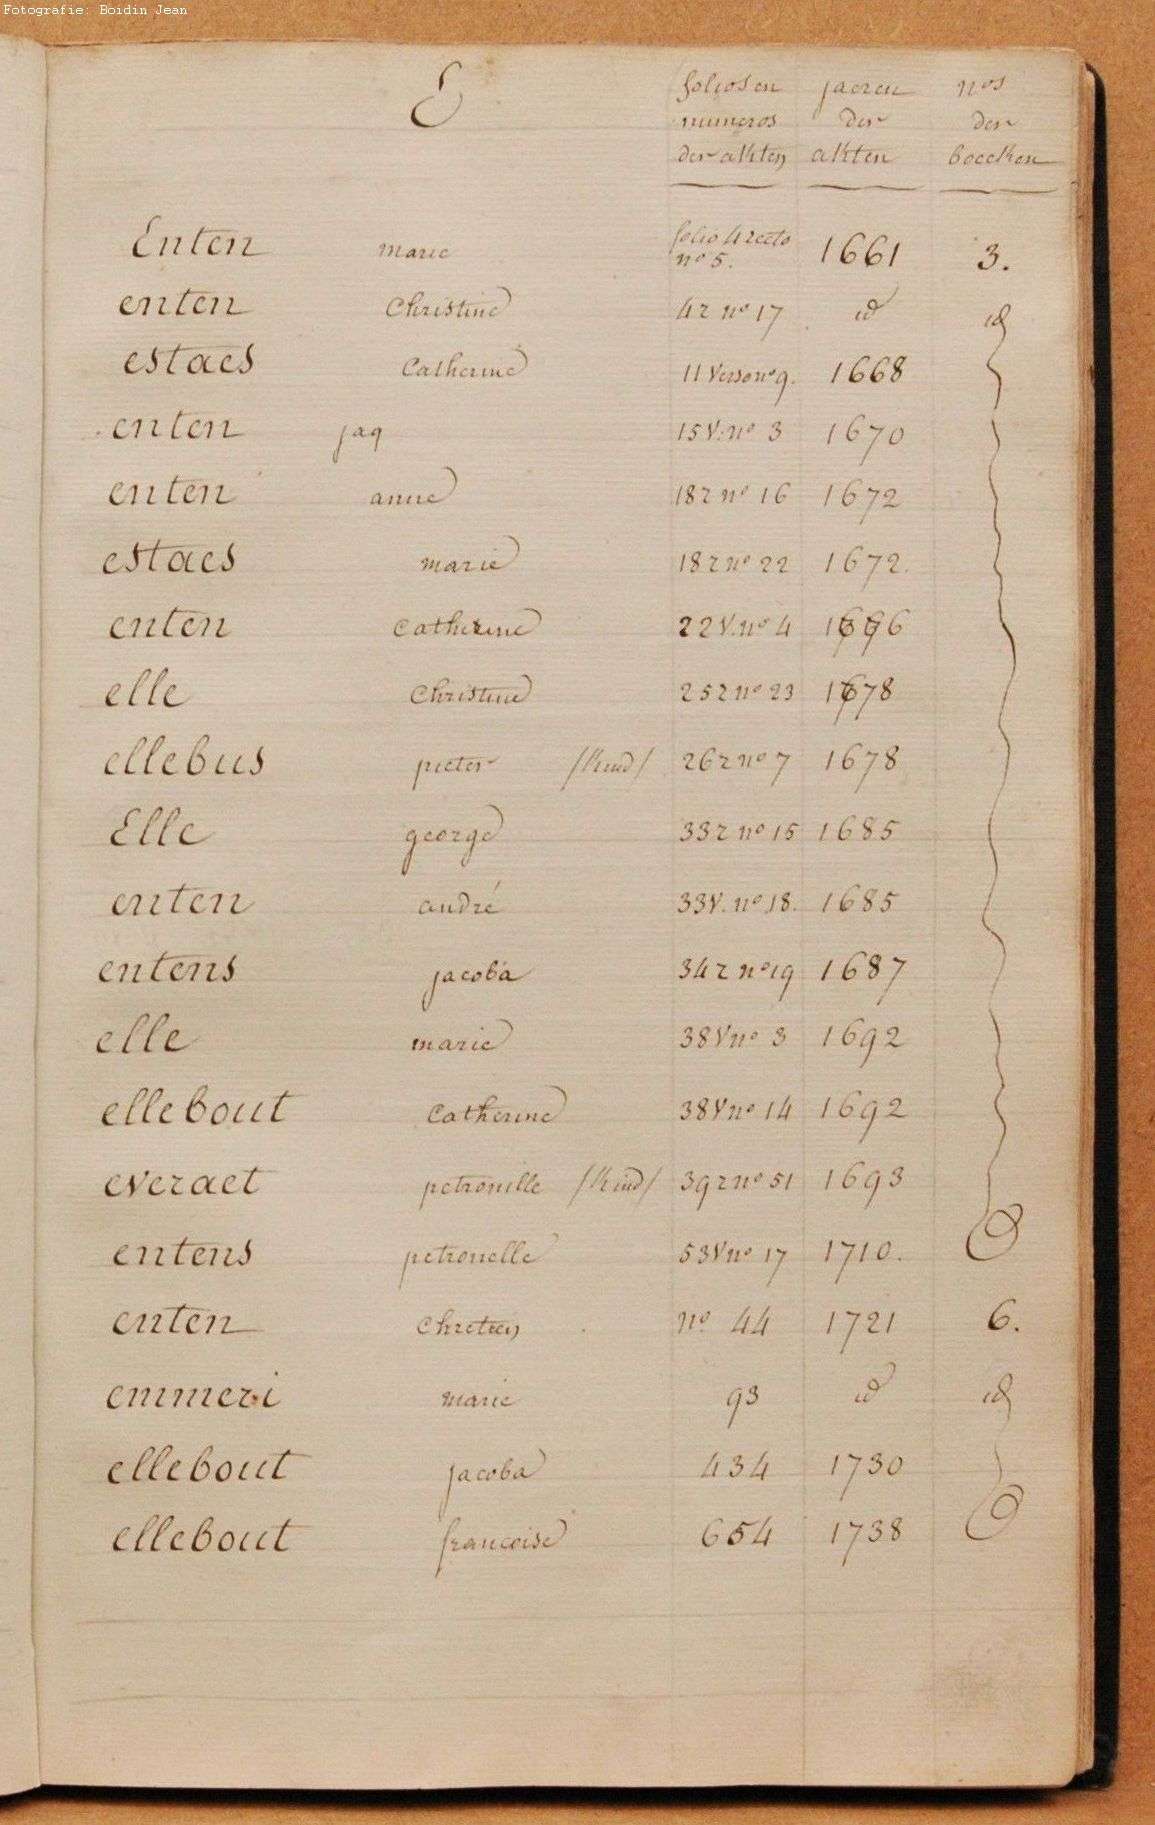 Fotografie: Boidin Jean
E
folios en jaeren nos
numeros der der
der akten akten boecken
Enten marie folio 4 recto no 5. 1661 3.
enten Christine 4 r no 17 id id
estaes Catherine 11 verso no 9. 1668
enten jaq 15 V. no 3 1670
enten anne 18 r no 16 1672
estaes marie 18 r no 22 1672.
enten Catherine 22 V. no 4
elle Christine 25 r no 23 1678
ellebus pieter /kind/ 26 r no 7 1678
Elle george 33 r no 15 1685
enten andré 33 V. no 18. 1685
entens jacoba 34 r no 19 1687
elle marie 38 V no 3 1692
ellebout Catherine 38 V no 14 1692
everaet petronille /kind/ 39 r no 51 1693
entens petronelle 53 V no 17 1710.
enten Chretien no. 44 1721 6.
emmeri marie 93 id id
ellebout jacoba 434 1730
ellebout francoise 654 1738